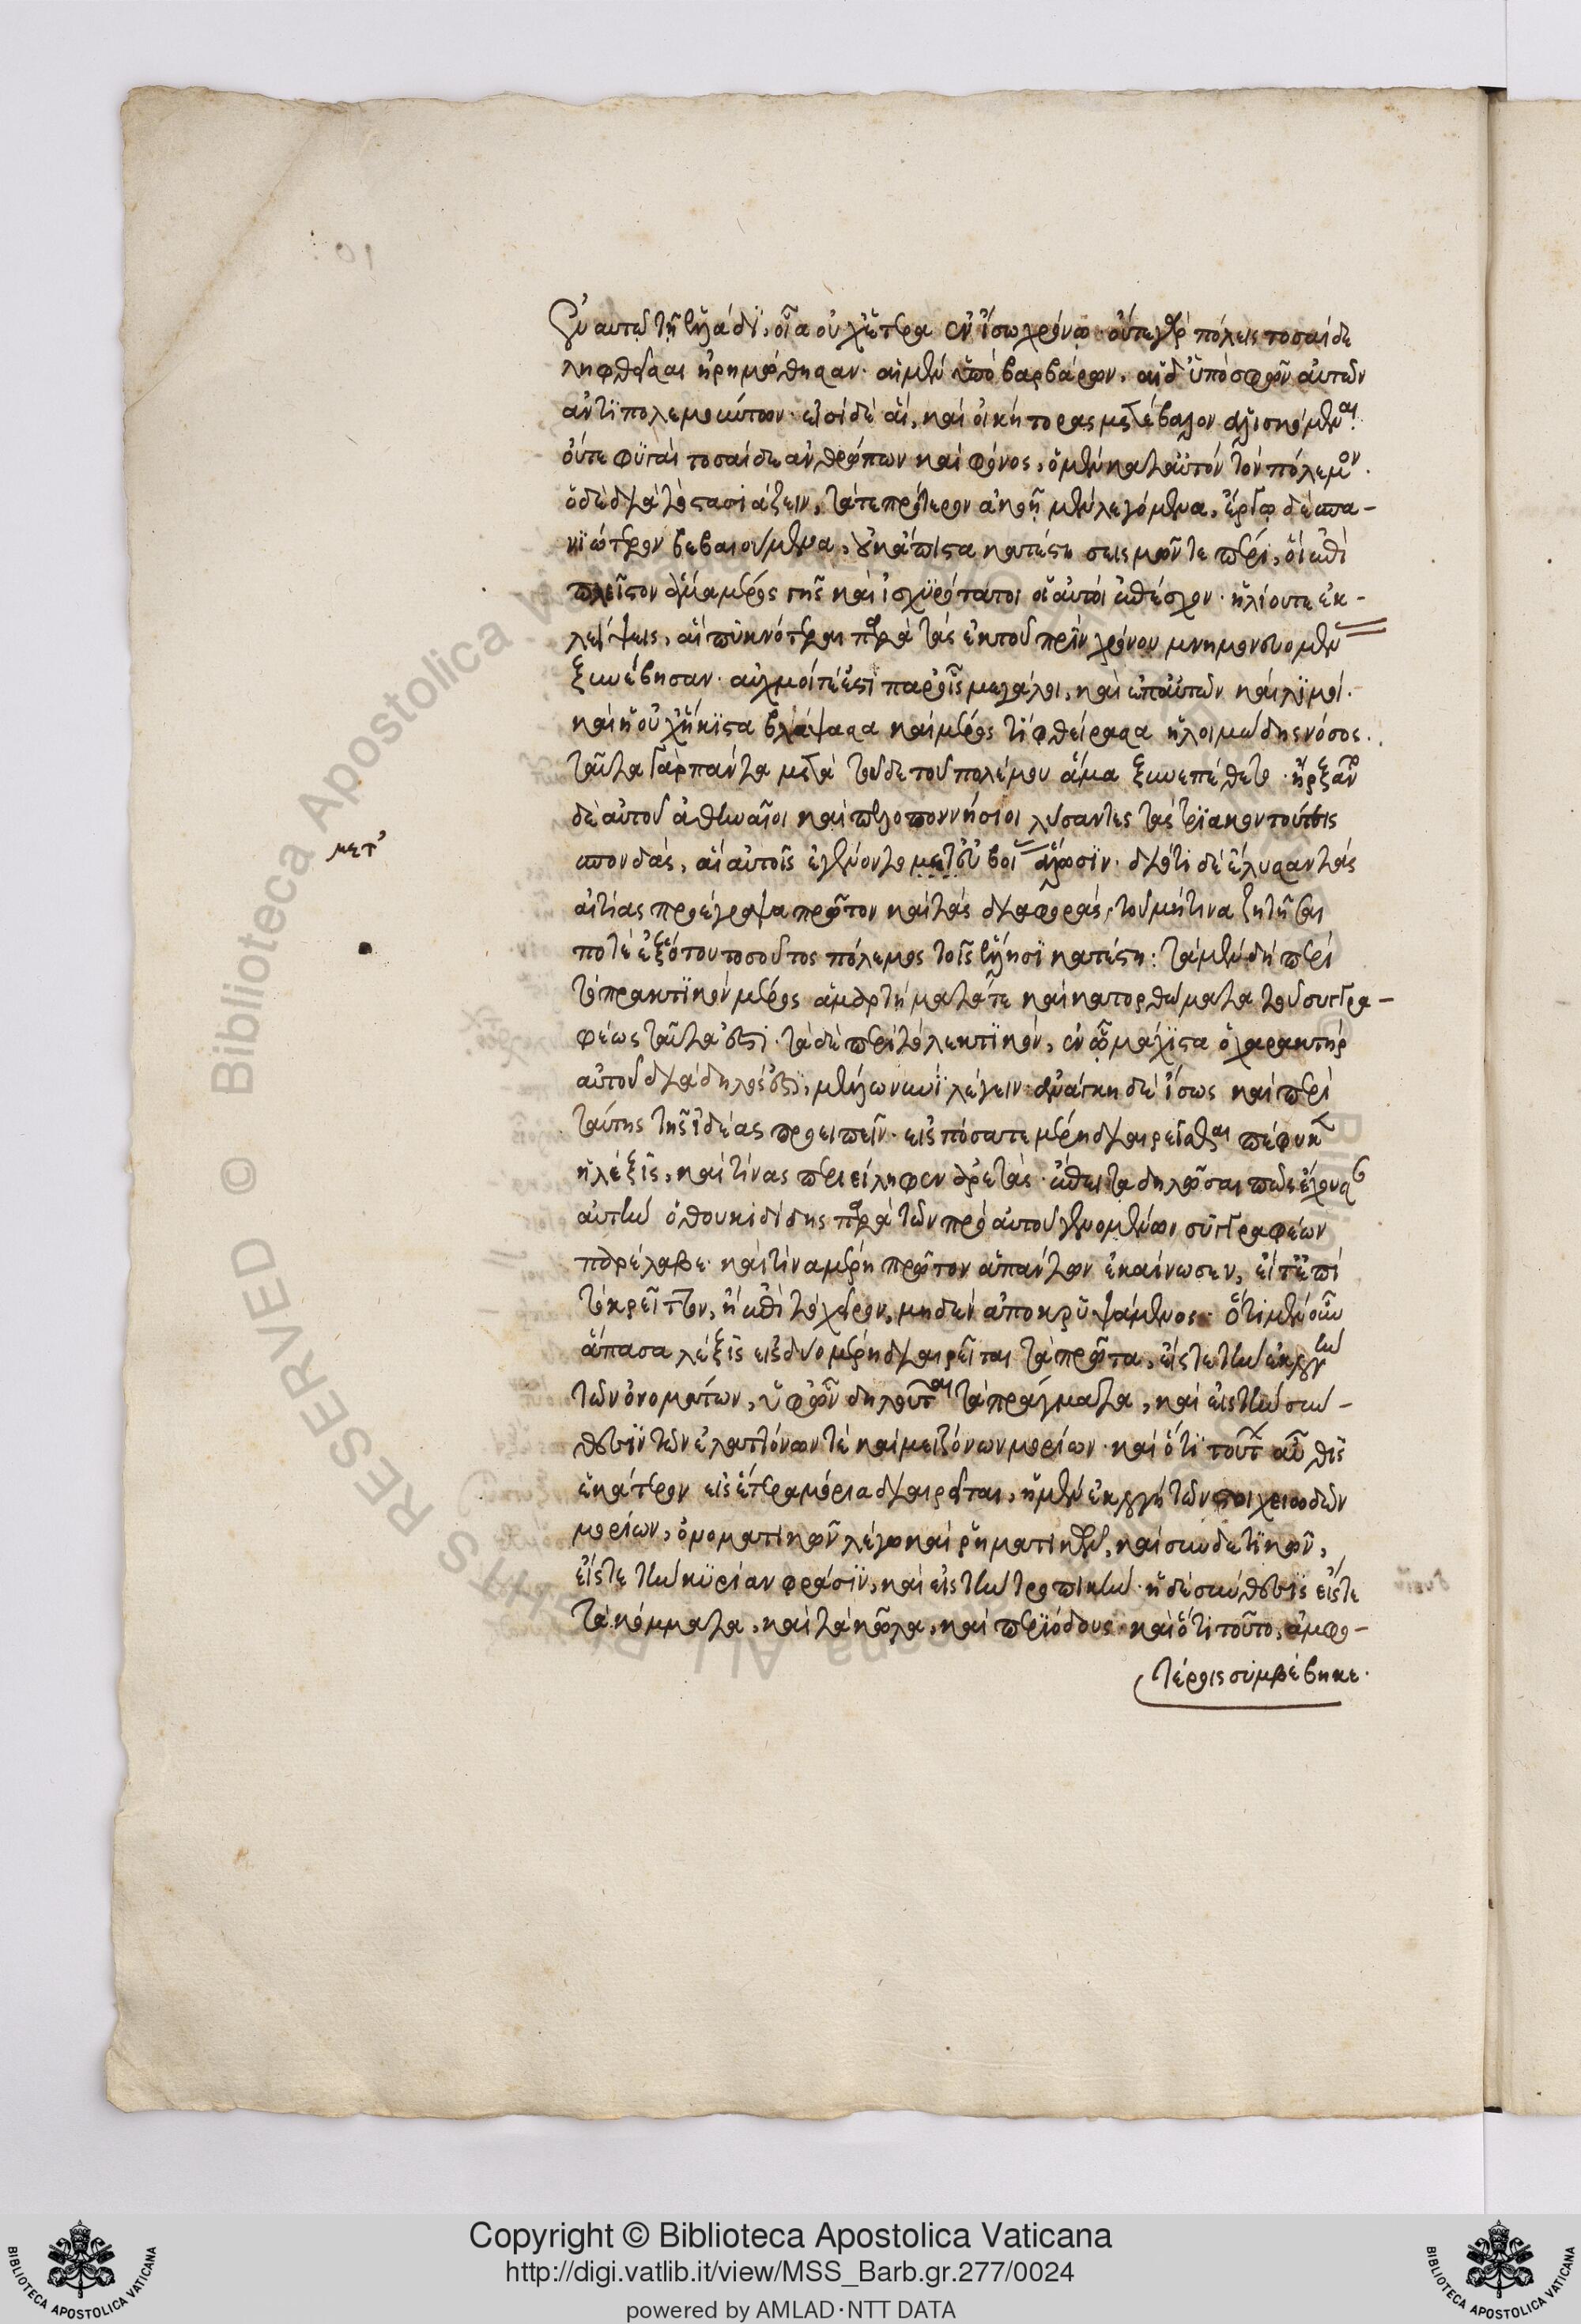 ἐν αυτῷ τῇ ἑλλάδϊ, οἷα οὐχ ἕτερα ἐν ἴσω χρόνῳ· οὔτε γὰρ πόλεις τοσαίδε
ληφθεῖσαι ἠρημώθησαν· αἱ μὲν ὑπὸ βαρβάρων, αἱ δ' ὑπὸ σφῶν αὐτῶν
ἀντϊπολεμούντων· εἰσὶ δὲ αἳ, καὶ οἰκήτορας μετέβαλον ἁλισκόμεναι.
οὔτε φϋγαὶ τοσαίδε ἀνθρώπων καὶ φόνος, ὁ μὲν κατ' αὐτὸν τὸν πόλεμον.
ὁ δὲ διὰ τὸ στασιάζειν, τά τε πρότερον ἀκοῇ μὲν λεγόμενα, ἔργῳ δὲ σπα-
νϊώτερον βεβαιούμενα, οὐκ ἄπιστα κατέστη σεισμῶν τε περὶ, οἳ ἐπὶ
πλεῖστον ἅμα μέρος γῆς καὶ ἰσχϋρότατοι οἱ αὐτοὶ ἐπέσχον· ἡλίου τε ἐκ-
λείψεις, αἳ πϋκνότεραι παρὰ τὰς ἐκ τοῦ πρὶν χρόνου μνημονευομεν
ξυνέβησαν· αὐχμοί τέ ἔστϊ παρ' οἷς μεγάλοι, καὶ ἀπ' αὐτῶν καὶ λϊμοί·
καὶ ἡ οὐχ ἥκϊστα βλάψασα καὶ μέρος τϊ φθείρασα ἡ λοιμώδης νόσος.
ταῦτα γὰρ πάντα μετὰ τοῦδε τοῦ πολέμου ἅμα ξυνεπέθετο· ἤρξαντο
δὲ αὐτοῦ ἀθηναῖοι καὶ πελοποννήσιοι λύσαντες τὰς τρϊακοντούτεις
σπονδὰς, αἳ αὐτοῖς ἐγένοντο μετ' εὐβοί ἅλωσϊν· διότι δὲ ἔλυσαν τὰς
αἰτίας προέγραψα πρῶτον καὶ τὰς διαφορὰς, τοῦ μή τινα ζητῆσαι
ποτὲ ἐξ ὅτου τοσοῦτος πόλεμος τοῖς ἕλλησϊ κατέστη: τὰ μὲν δὴ περὶ
τὸ πρακτϊκὸν μέρος ἁμαρτήματά τε καὶ κατορθώματα τοῦ συγγρα-
φέως ταῦτά ἐστϊ· τὰ δὲ περὶ τὸ λεκτϊκὸν, ἐν ᾧ μάλϊστα ὁ χαρακτὴρ
αὐτοῦ διάδηλός ἐστϊ, μέλλων νυνὶ λέγειν· ἀνάγκη δὲ ἴσως καὶ περὶ
ταύτης τῆς ἰδέας προειπεῖν· εἰς πόσα τε μέρη διαιρεῖσθαι πέφυκε
ἡ λέξις, καὶ τίνας περιείληφεν ἀρετάς· ἔπειτα δηλῶσαι πῶς ἔχουσαν
αὐτὴν ὁ θουκϊδίδης παρὰ τῶν πρὸ αὐτοῦ γενομένων συγγραφέων
παρέλαβε· καὶ τίνα μέρη πρῶτον ἁπάντων ἐκαίνωσεν, εἴτ' ἐπὶ
τὸ κρεῖττον, ἢ ἐπὶ τὸ χεῖρον, μηδὲν ἀποκρϋψάμενος· ὅτι μὲν οὖν
ἅπασα λέξις εἰς δύο μέρη διαιρεῖται τὰ πρῶτα, εἴς τε τὴν ἐκλογὴν
τῶν ὀνομάτων, ὑφ' ὧν δηλοῦται τὰ πράγματα, καὶ εἰς τὴν συν-
θεσϊν τῶν ἐλαττόνων τὲ καὶ μειζόνων μορίων· καὶ ὅτϊ τούτων αὖθις
ἑκάτερον εἰς ἕτερα μόρια διαιρεῖται, ἡ μὲν ἐκλογὴ τῶν στοιχειωδῶν
μορίων, ὀνοματικῶν λέγω καὶ ῥηματικῶν, καὶ συνδετϊκῶν,
εἴς τε τὴν κϋρίαν φράσϊν, καὶ εἰς τὴν τροπικήν· ἡ δὲ σύνθεσϊς εἴς τε
τὰ κόμματα, καὶ τὰ κῶλα, καὶ περϊόδους· καὶ ὅτι τοῦτο, ἀμφο-
τέροις συμβέβηκε·
μετ'
Copyright © Biblioteca Apostolica Vaticana
http://digi.vatlib.it/view/MSS_Barb.gr.277/0024
powered by AMLAD·NTT DATA
BIBLIOTECA APOSTOLICA VATICANA
BIBLIOTECA APOSTOLICA VATICANA